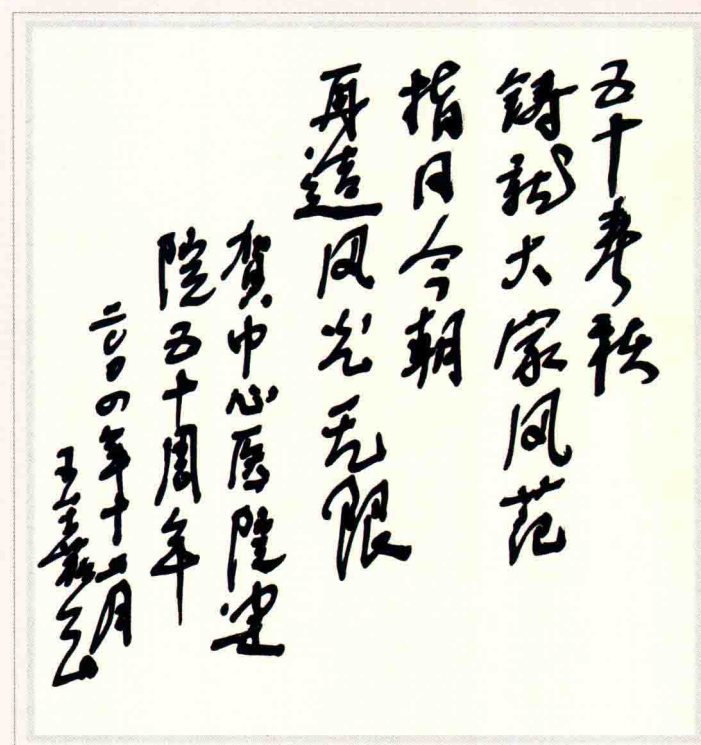 五十春秋
铸就大家风范
指日今朝
再造风光无限
贺中心医院建
院五十周年
二〇〇四年十二月
王